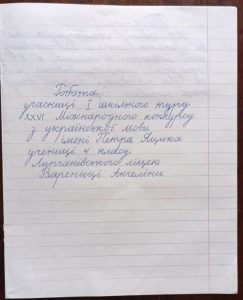 Робота
учасниці I шкільного туру
XXVI Міжнародного конкурсу
з української мови
імені Петра Яцика
учениці 4 класу
ліцею
Варениці Ангеліни